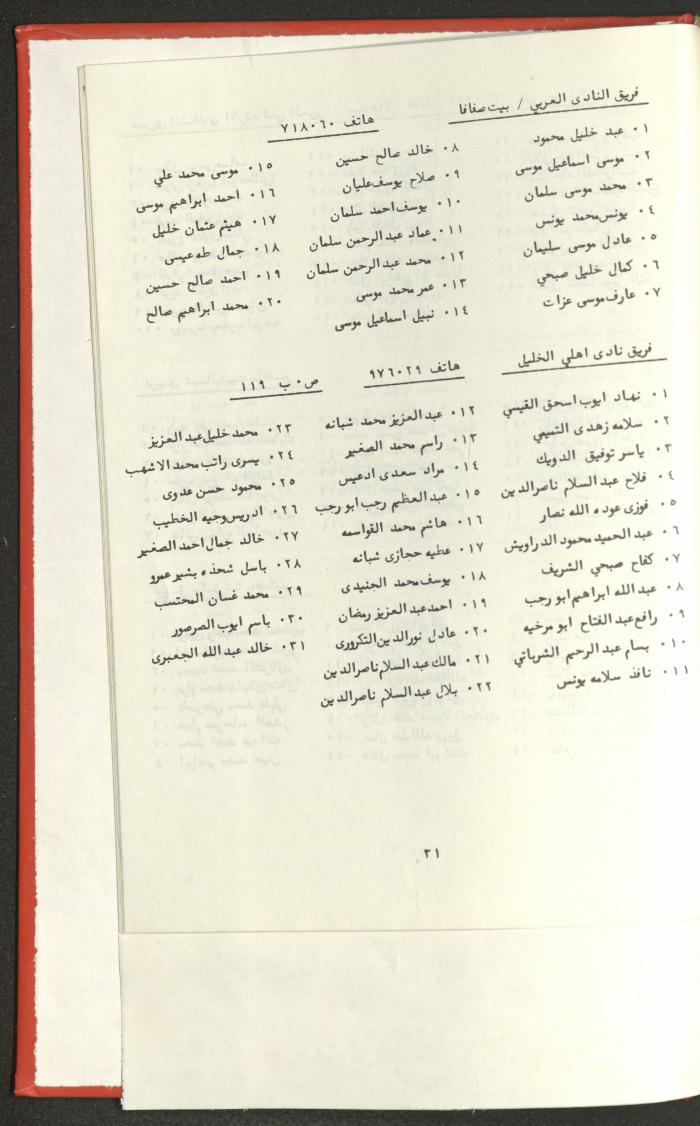 فريق النادى العربي / بيت صفافا
هاتف ٧١٨٠٦٠
٠١ عبد خليل محمود
٠٢ موسى اسماعيل موسى
٠٣ محمد موسى سلمان
٠٤ يونس محمد يونس
٠٥ عادل موسى سليمان
٠٦ كمال خليل صبحي
٠٧ عارف موسى عزات
٠٨ خالد صالح حسين
٠٩ صلاح يوسف عليان
٠١٠ يوسف احمد سلمان
٠١١ عماد عبد الرحمن سلمان
٠١٢ محمد عبد الرحمن سلمان
٠١٣ عمر محمد موسى
٠١٤ نبيل اسماعيل موسى
٠١٥ موسى محمد علي
٠١٦ احمد ابراهيم موسى
٠١٧ هيثم عثمان خليل
٠١٨ جمال طه عيسى
٠١٩ احمد صالح حسين
٠٢٠ محمد ابراهيم صالح
فريق نادى اهلي الخليل
هاتف ٩٧٦٠٢٩
ص٠ب ١١٩
٠١ نهاد ايوب اسحق القيسي
٠٢ سلامه زهدى التميمي
٠٣ ياسر توفيق الدويك
٠٤ فلاح عبد السلام ناصر الدين
٠٥ فوزى عوده الله نصار
٠٦ عبد الحميد محمود الدراويش
٠٧ كفاح صبحي الشريف
٠٨ عبد الله ابراهيم ابو رجب
٠٩ رافع عبد الفتاح ابو مرخيه
٠١٠ بسام عبد الرحيم الشرباتي
٠١١ نافذ سلامه يونس
٠١٢ عبد العزيز محمد شبانه
٠١٣ راسم محمد الصغير
٠١٤ مراد سعدى ادعيس
٠١٥ عبد العظيم رجب ابو رجب
٠١٦ هاشم محمد القواسمه
٠١٧ عطيه حجازى شبانه
٠١٨ يوسف محمد الجنيدى
٠١٩ احمد عبد العزيز رمضان
٠٢٠ عادل نور الدين التكرورى
٠٢١ مالك عبد السلام ناصر الدين
٠٢٢ بلال عبد السلام ناصر الدين
٠٢٣ محمد خليل عبد العزيز
٠٢٤ يسرى راتب محمد الاشهب
٠٢٥ محمود حسن عدوى
٠٢٦ ادريس وجيه الخطيب
٠٢٧ خالد جمال احمد الصغير
٠٢٨ باسل شحذه بشير عمرو
٠٢٩ محمد غسان المحتسب
٠٣٠ باسم ايوب الصرصور
٠٣١ خالد عبد الله الجعبرى
٣١